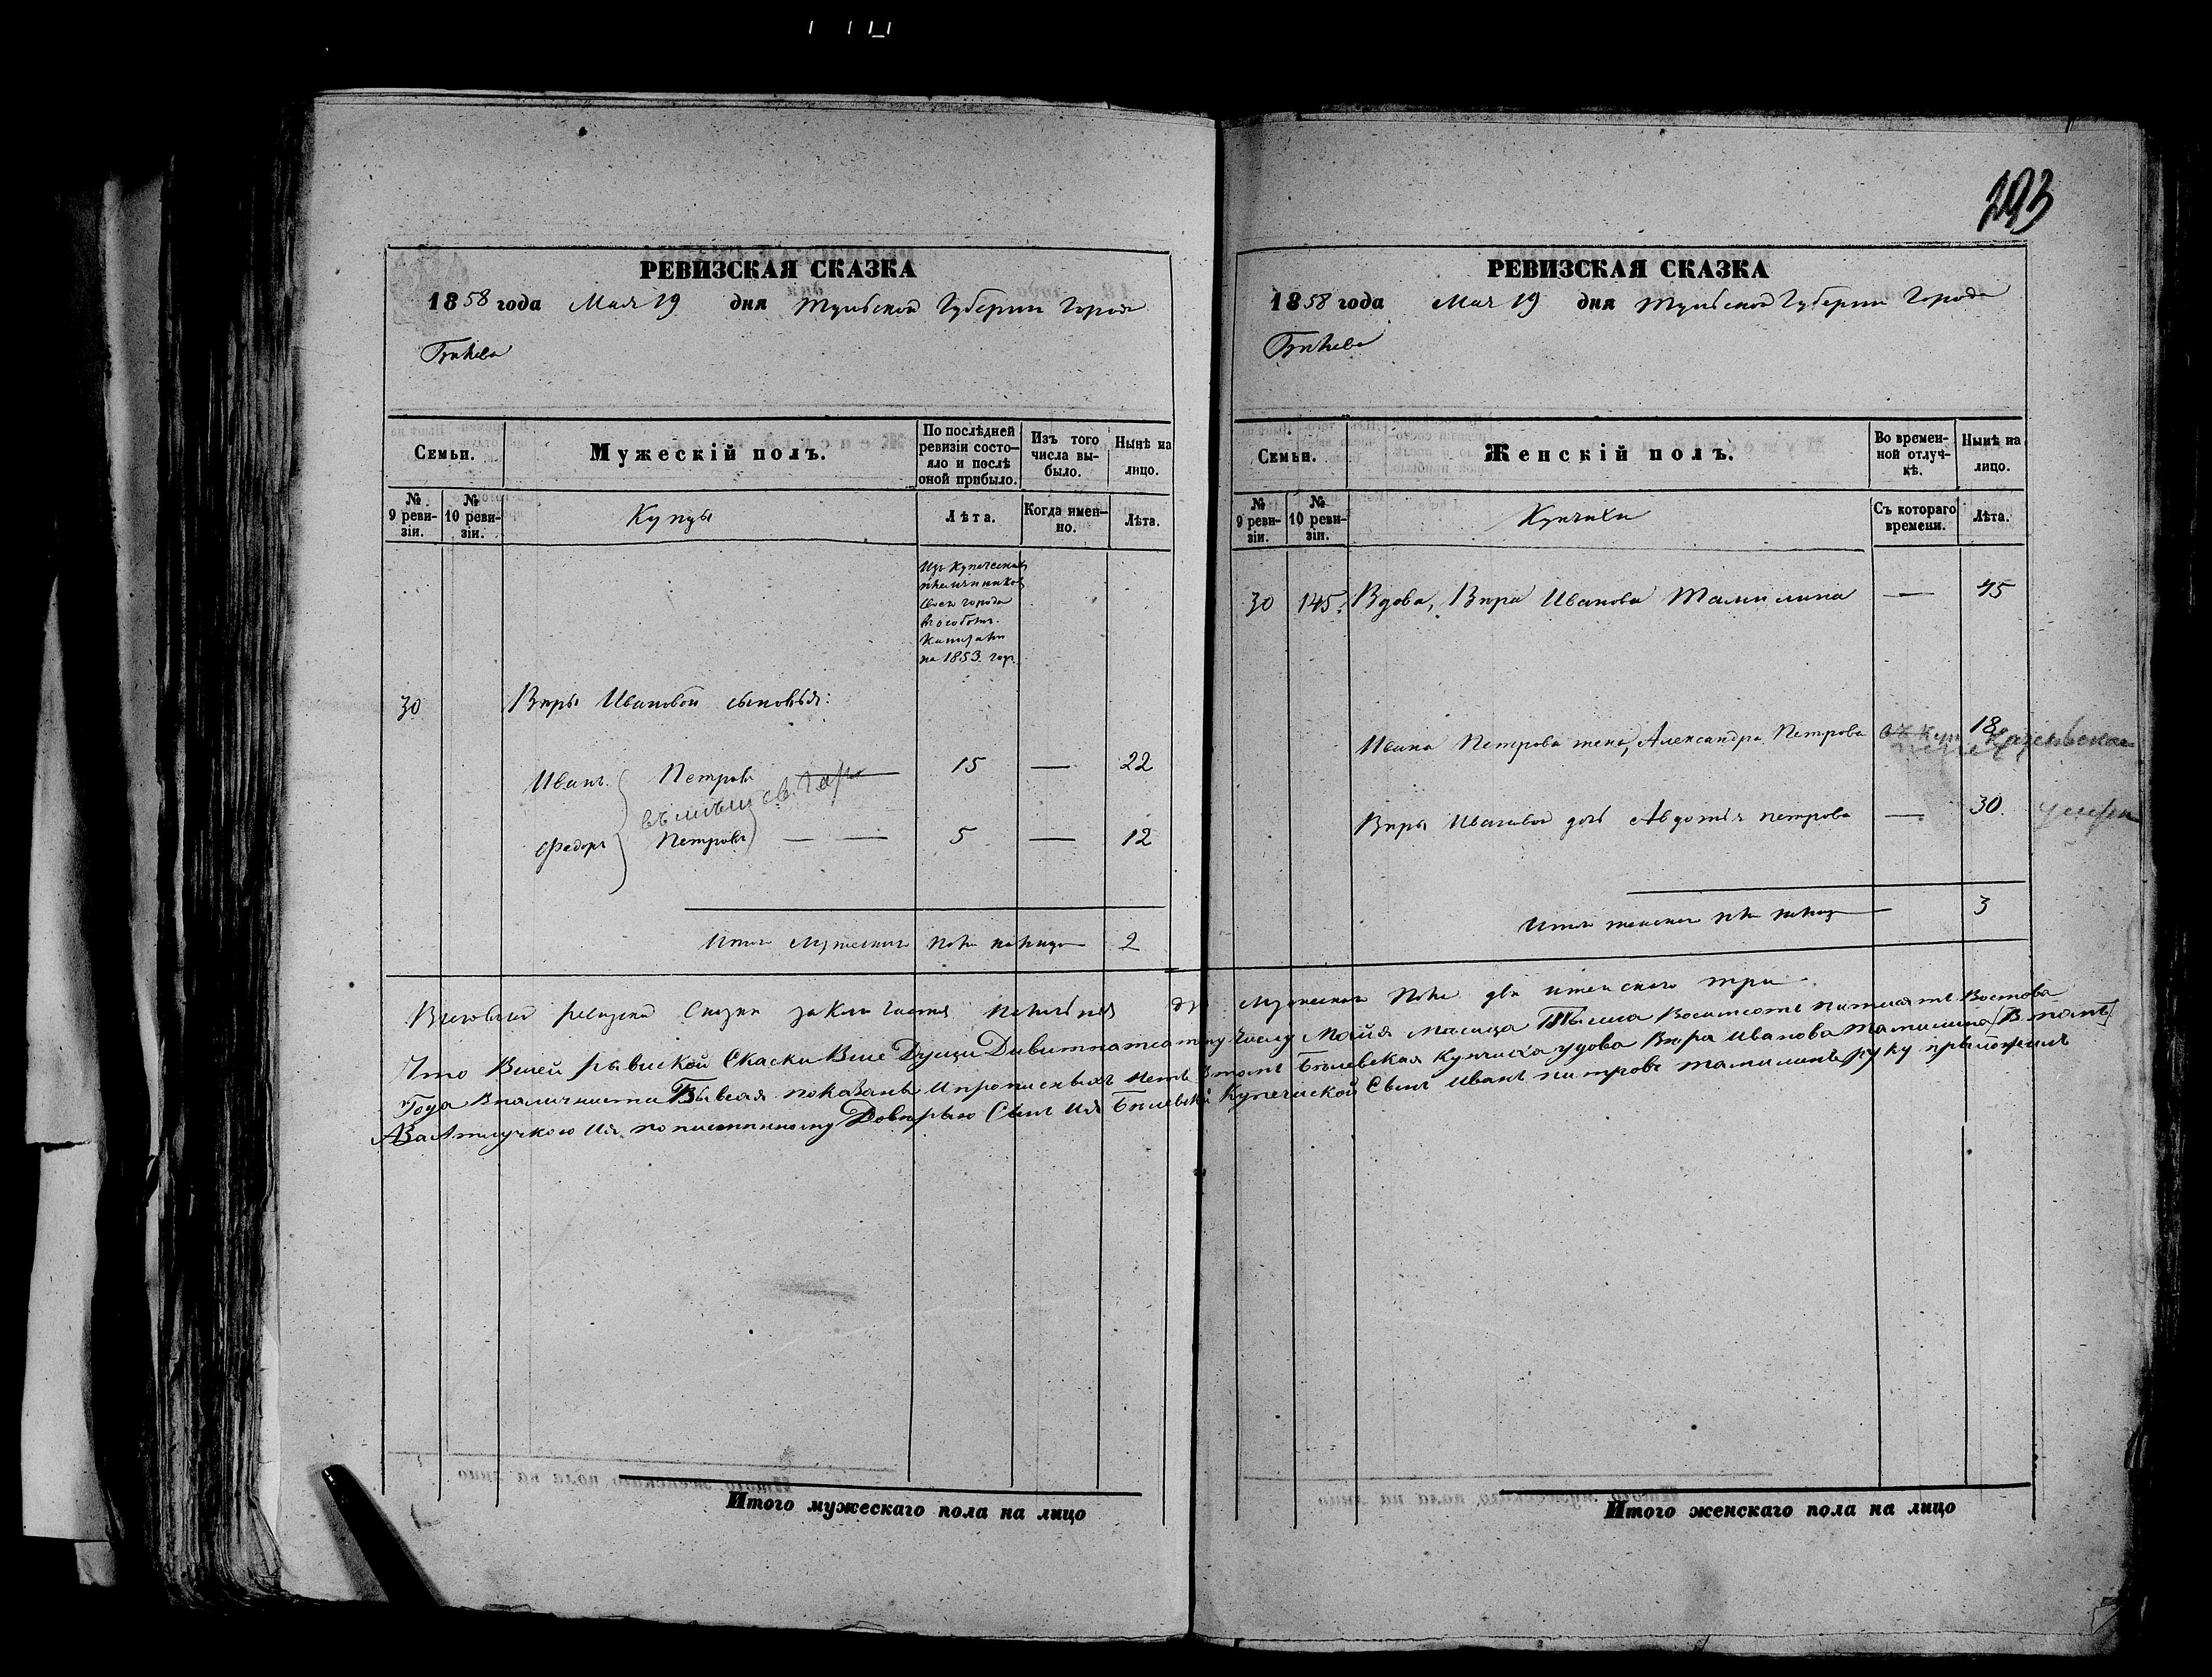 293
РЕВИЗСКАЯ СКАЗКА
1858 года Мая 19 дня Тульской Губернии Города
Бѣлева
Семьи.
Мужескій полъ.
По послѣдней ревизіи состояло и послѣ оной прибыло.
Изъ того числа выбыло.
Нынѣ на лицо.
№ 9 ревизіи.
№ 10 ревизіи.
Купцы
Лѣта.
Когда именно.
Лѣта.
Изъ Купеческихъ
племянниковъ
сего города
въ особомъ
Капиталѣ
на 1853. годъ
30 Вѣры Ивановой сыновья:
Иванъ Петровъ 15 — 22
Федоръ Петровъ — — 5 — 12
Итого мужескаго пола налицо 2
РЕВИЗСКАЯ СКАЗКА
1858 года Мая 19 дня Тульской Губернии Города
Бѣлева
Семьи.
Женскій полъ.
Во временной отлучкѣ.
Нынѣ на лицо.
№ 9 ревизіи.
№ 10 ревизіи.
Купчихи
Съ котораго времени.
Лѣта.
30 145. Вдова, Вѣра Иванова Тамилина — 45
Ивана Петрова жена, Александра Петрова 18
Вѣры Ивановой дочь Авдотья петрова — 30.
Итого женского пола налицо — 3
Мужеского пола два женского три
Что Всей рѣвиской Скаски Все Души Дивитнатцатому Числу Майя Месяца Тысеча Восемсотъ питисятъ Востова
Года Вналичности Бывсая показаны ипрописныхъ нетъ Втомъ Белевская Купчиха удова Вѣра Иванова Тамилина
Довѣрью Сынъ Ия Белевской Купеческой Сынъ Иванъ питровъ тамилинъ руку прыложилъ
Итого мужескаго пола на лицо
Итого женскаго пола на лицо